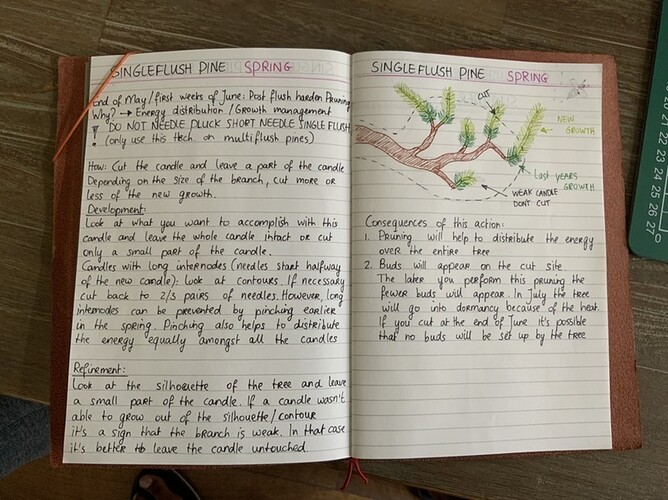 SINGLEFLUSH PINE SPRING
End of May/first weeks of June: Post flush harden Pruning
Why? → Energy distribution/Growth management
! DO NOT NEEDLE PLUCK SHORT NEEDLE SINGLE FLUSH
(only use this tech. on multiflush pines)
How: Cut the candle and leave a part of the candle
Depending on the size of the branch, cut more or
less of the new growth.
Development:
Look at what you want to accomplish with this
candle and leave the whole candle intact or cut
only a small part of the candle.
Candles with long internodes (needles start halfway
of the new candle): look at contours. If necessary
cut back to 2/3 pairs of needles. However, long
internodes can be prevented by pinching earlier
in the spring. Pinching also helps to distribute
the energy equally amongst all the candles
Refinement:
Look at the silhouette of the tree and leave
a small part of the candle. If a candle wasn't
able to grow out of the silhouette/contour
it's a sign that the branch is weak. In that case
it's better to leave the candle untouched.
SINGLEFLUSH PINE SPRING
CUT
NEW
GROWTH
Last YEARS
GROWTH
WEAK CANDLE
DON'T CUT
Consequences of this action:
1. Pruning will help to distribute the energy
over the entire tree
2. Buds will appear on the cut site.
The later you perform this pruning the
fewer buds will appear. In July the tree
will go into dormancy because of the heat.
If you cut at the end of June it's possible
that no buds will be set up by the tree
22 23 24 25 26 27